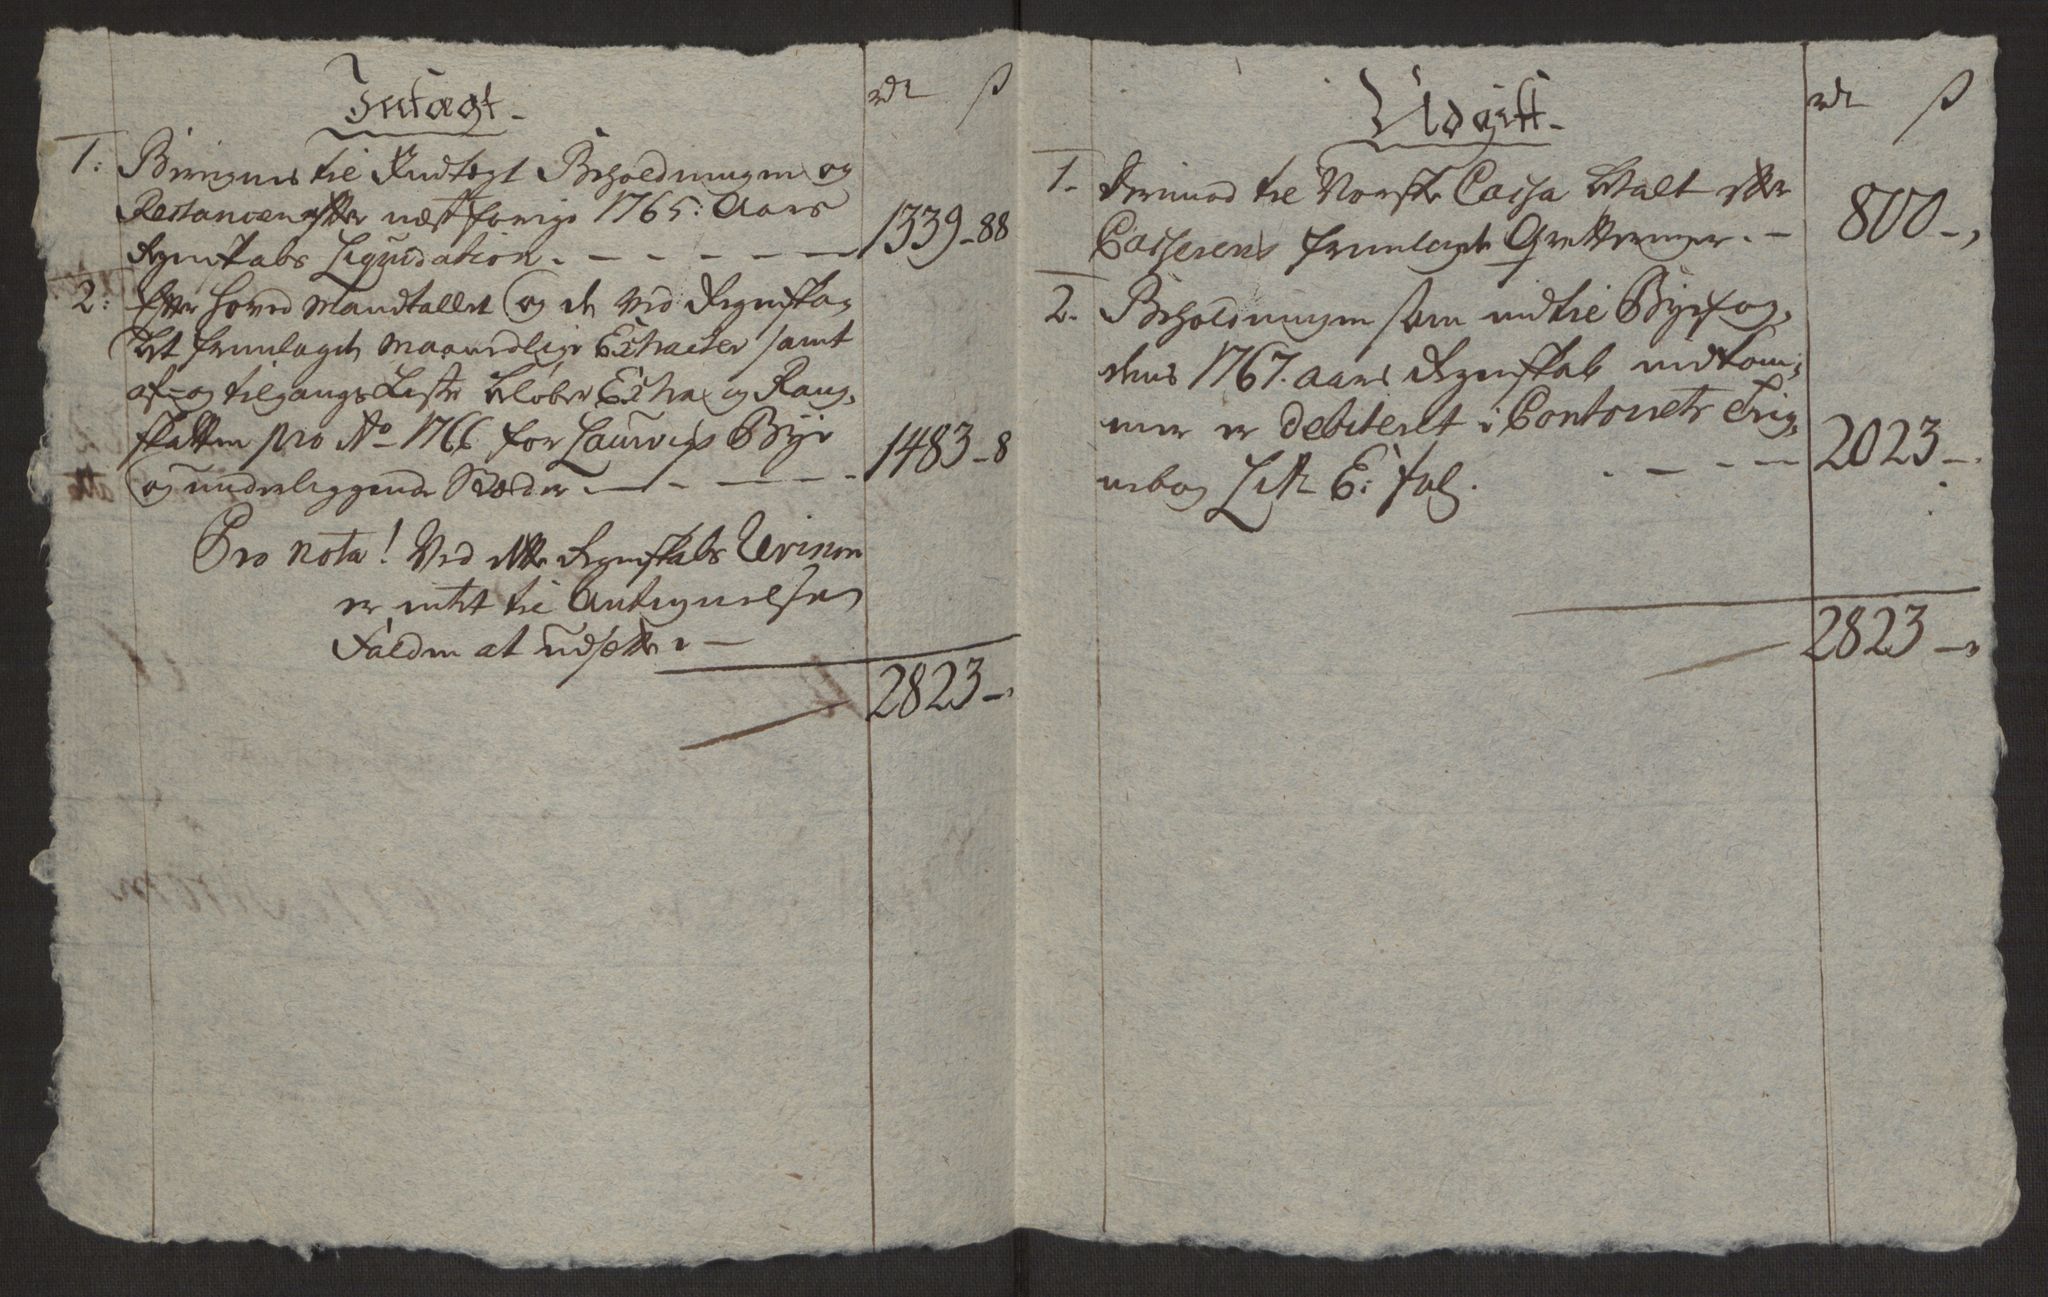 Indtægt.
rdr ß
1: Beregnes til Indtægt Beholdningen og
Restancen efter næstforige 1765: Aars
Regnskabs Liquidation. 1339-88
2: Efter Hoved Mandtallet og de ved Regnska-
bet fremlagde Maanedlige Extracter samt
af- og tilgangs Liste beløber Extra og Rang-
skatten pro Ao 1766 for Laurvigs Bye
og underliggende Stæder 1483-8
Pro Nota! Ved dette Regnskabs Revision
er intet til Antegnelse
falden at udsætte
2823-,
Udgift.
rdr ß
1. Derimod til Norske Cassa betalt efter
Casserens fremlagde Qvitteringer. 800-,
2. Beholdningen som ind til Byefog-
dens 1767. aars Regnskab indkom-
mer er debiteret i Contoirets Teig-
nebog Litr E: fol. 2023-.
2823-,